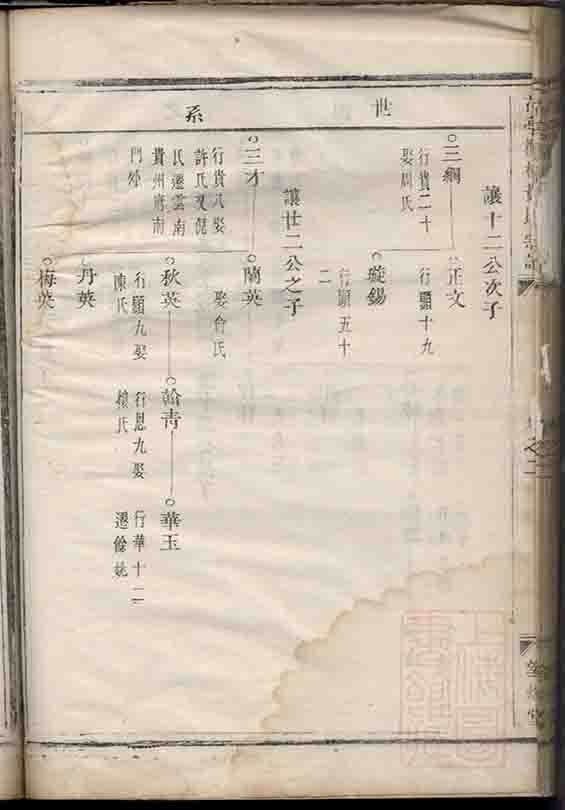 世系
讓十二公次子
三綱
行貴二十
娶周氏
正文
行顯十九
璇錫
行顯五十
二
讓廿二公之子
三才
行貴八娶
許氏又倪
氏遷雲南
貴州府南
門外
蘭英
娶俞氏
秋英
行顯九娶
陳氏
翰青
行恩九娶
賴氏
華玉
行華十二
遷餘姚
丹英
梅英